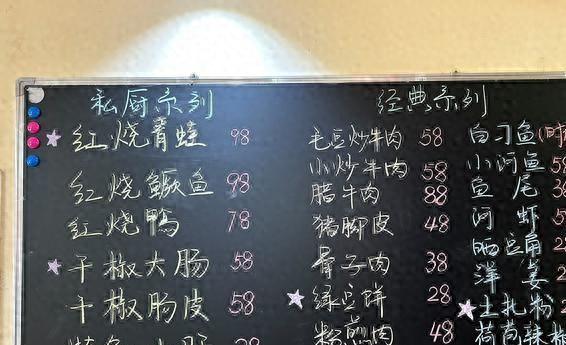 私厨系列
红烧青蛙 98
红烧鳜鱼 98
红烧鸭 78
干椒大肠 58
干椒肠皮 58
经典系列
毛豆炒牛肉 58
小炒牛肉 58
腊牛肉 88
猪脚皮 48
骨子肉 38
绿豆饼 28
粉蒸肉 48
白刁鱼
小河鱼
鱼尾
河虾
晒豆角
洋姜
土扎粉
荷苞辣椒